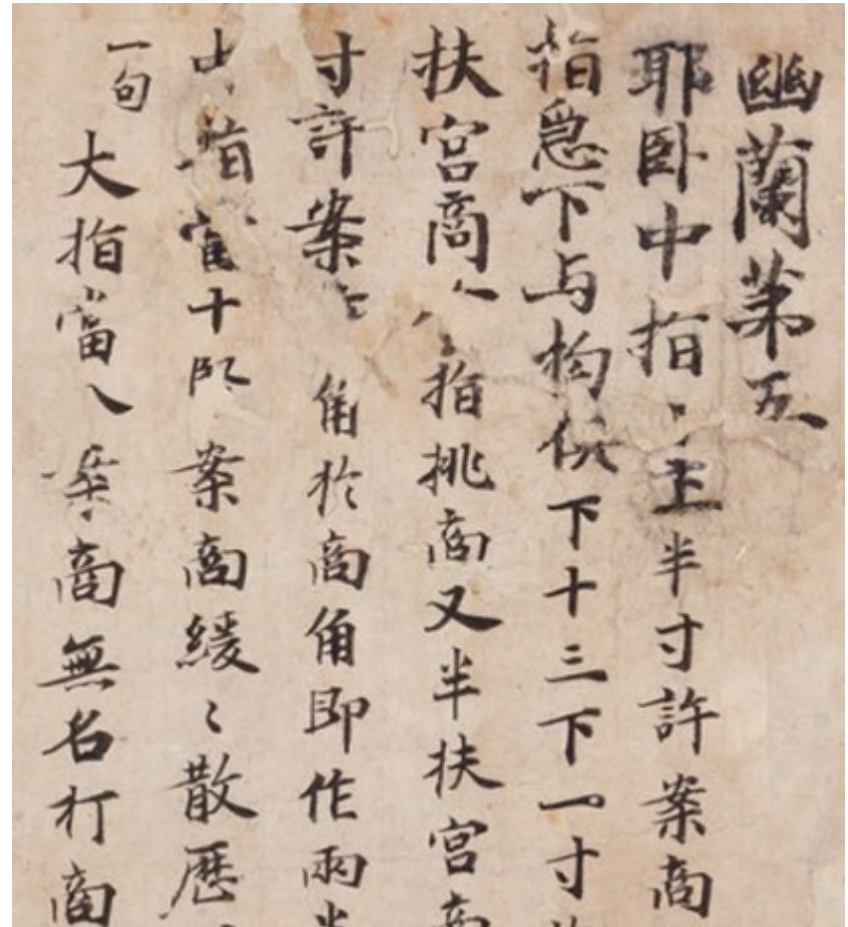 幽蘭第五
耶卧中指〻上半寸許案商
指急下与拘俱下十三下一寸
扶宮商指挑商又半扶宮商
寸許案角於商角即作兩半
指當十案商緩〻散歷
一句
大指當八案商無名打商